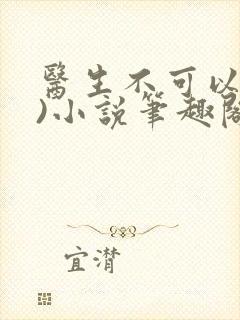 醫生不可以
)小說筆趣閣
宜潸